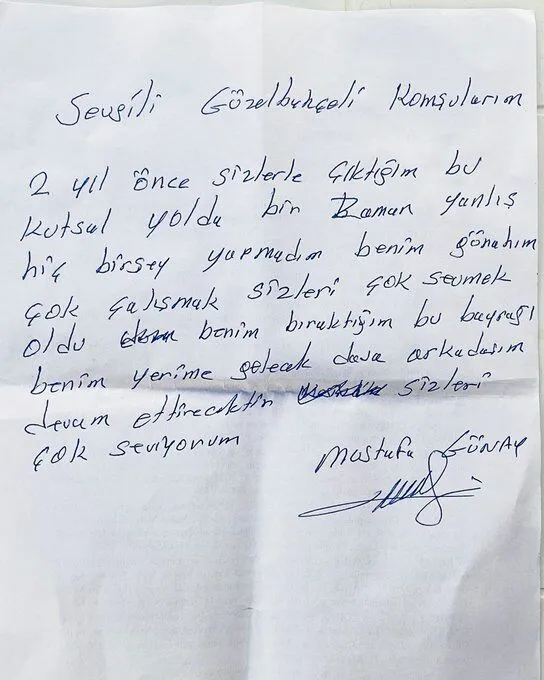 Sevgili Gözelbahçeli Komşularım
2 yıl önce sizlerle çıktığım bu
kutsal yolda bin zaman yanlış
hiç birşey yapmadım benim günahım
çok çalışmak sizleri çok sevmek
oldu benim bıraktığım bu bayrağı
benim yerime gelecek dava arkadaşım
devam ettirecektir sizleri
çok seviyorum
Mustafa GÜNAY